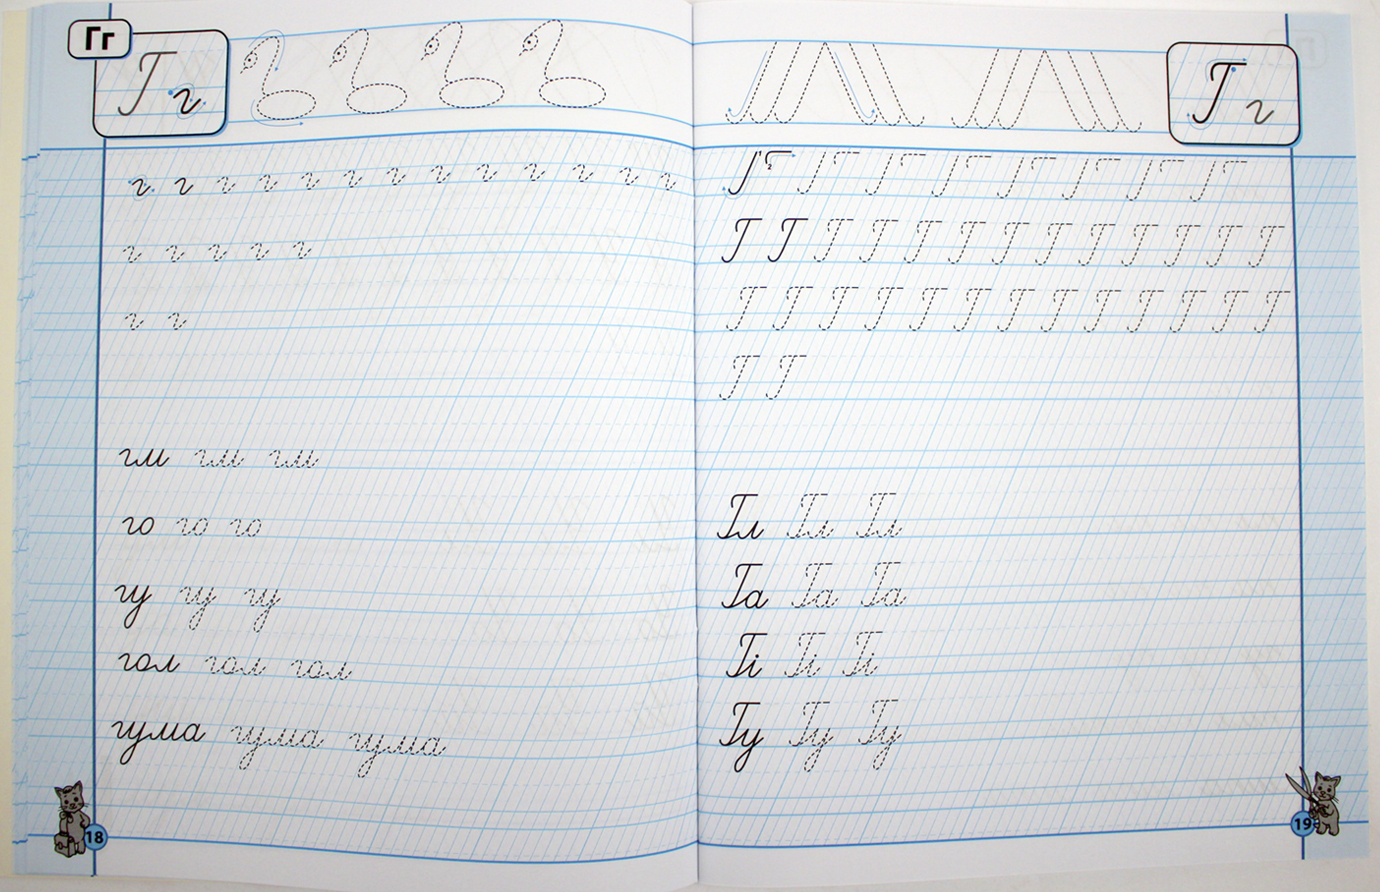 Гг
Г г
г г г г г г г г г г г г г
г г г г г
г г
гм гм гм
го го го
гу гу гу
гол гол гол
гума гума гума
18
Г г
Г Г Г Г Г Г Г Г
Г Г Г Г Г Г Г Г Г Г Г Г Г
Г Г Г Г Г Г Г Г Г Г Г Г Г
Г Г
Гл Гл Гл
Га Га Га
Гі Гі Гі
Гу Гу Гу
19